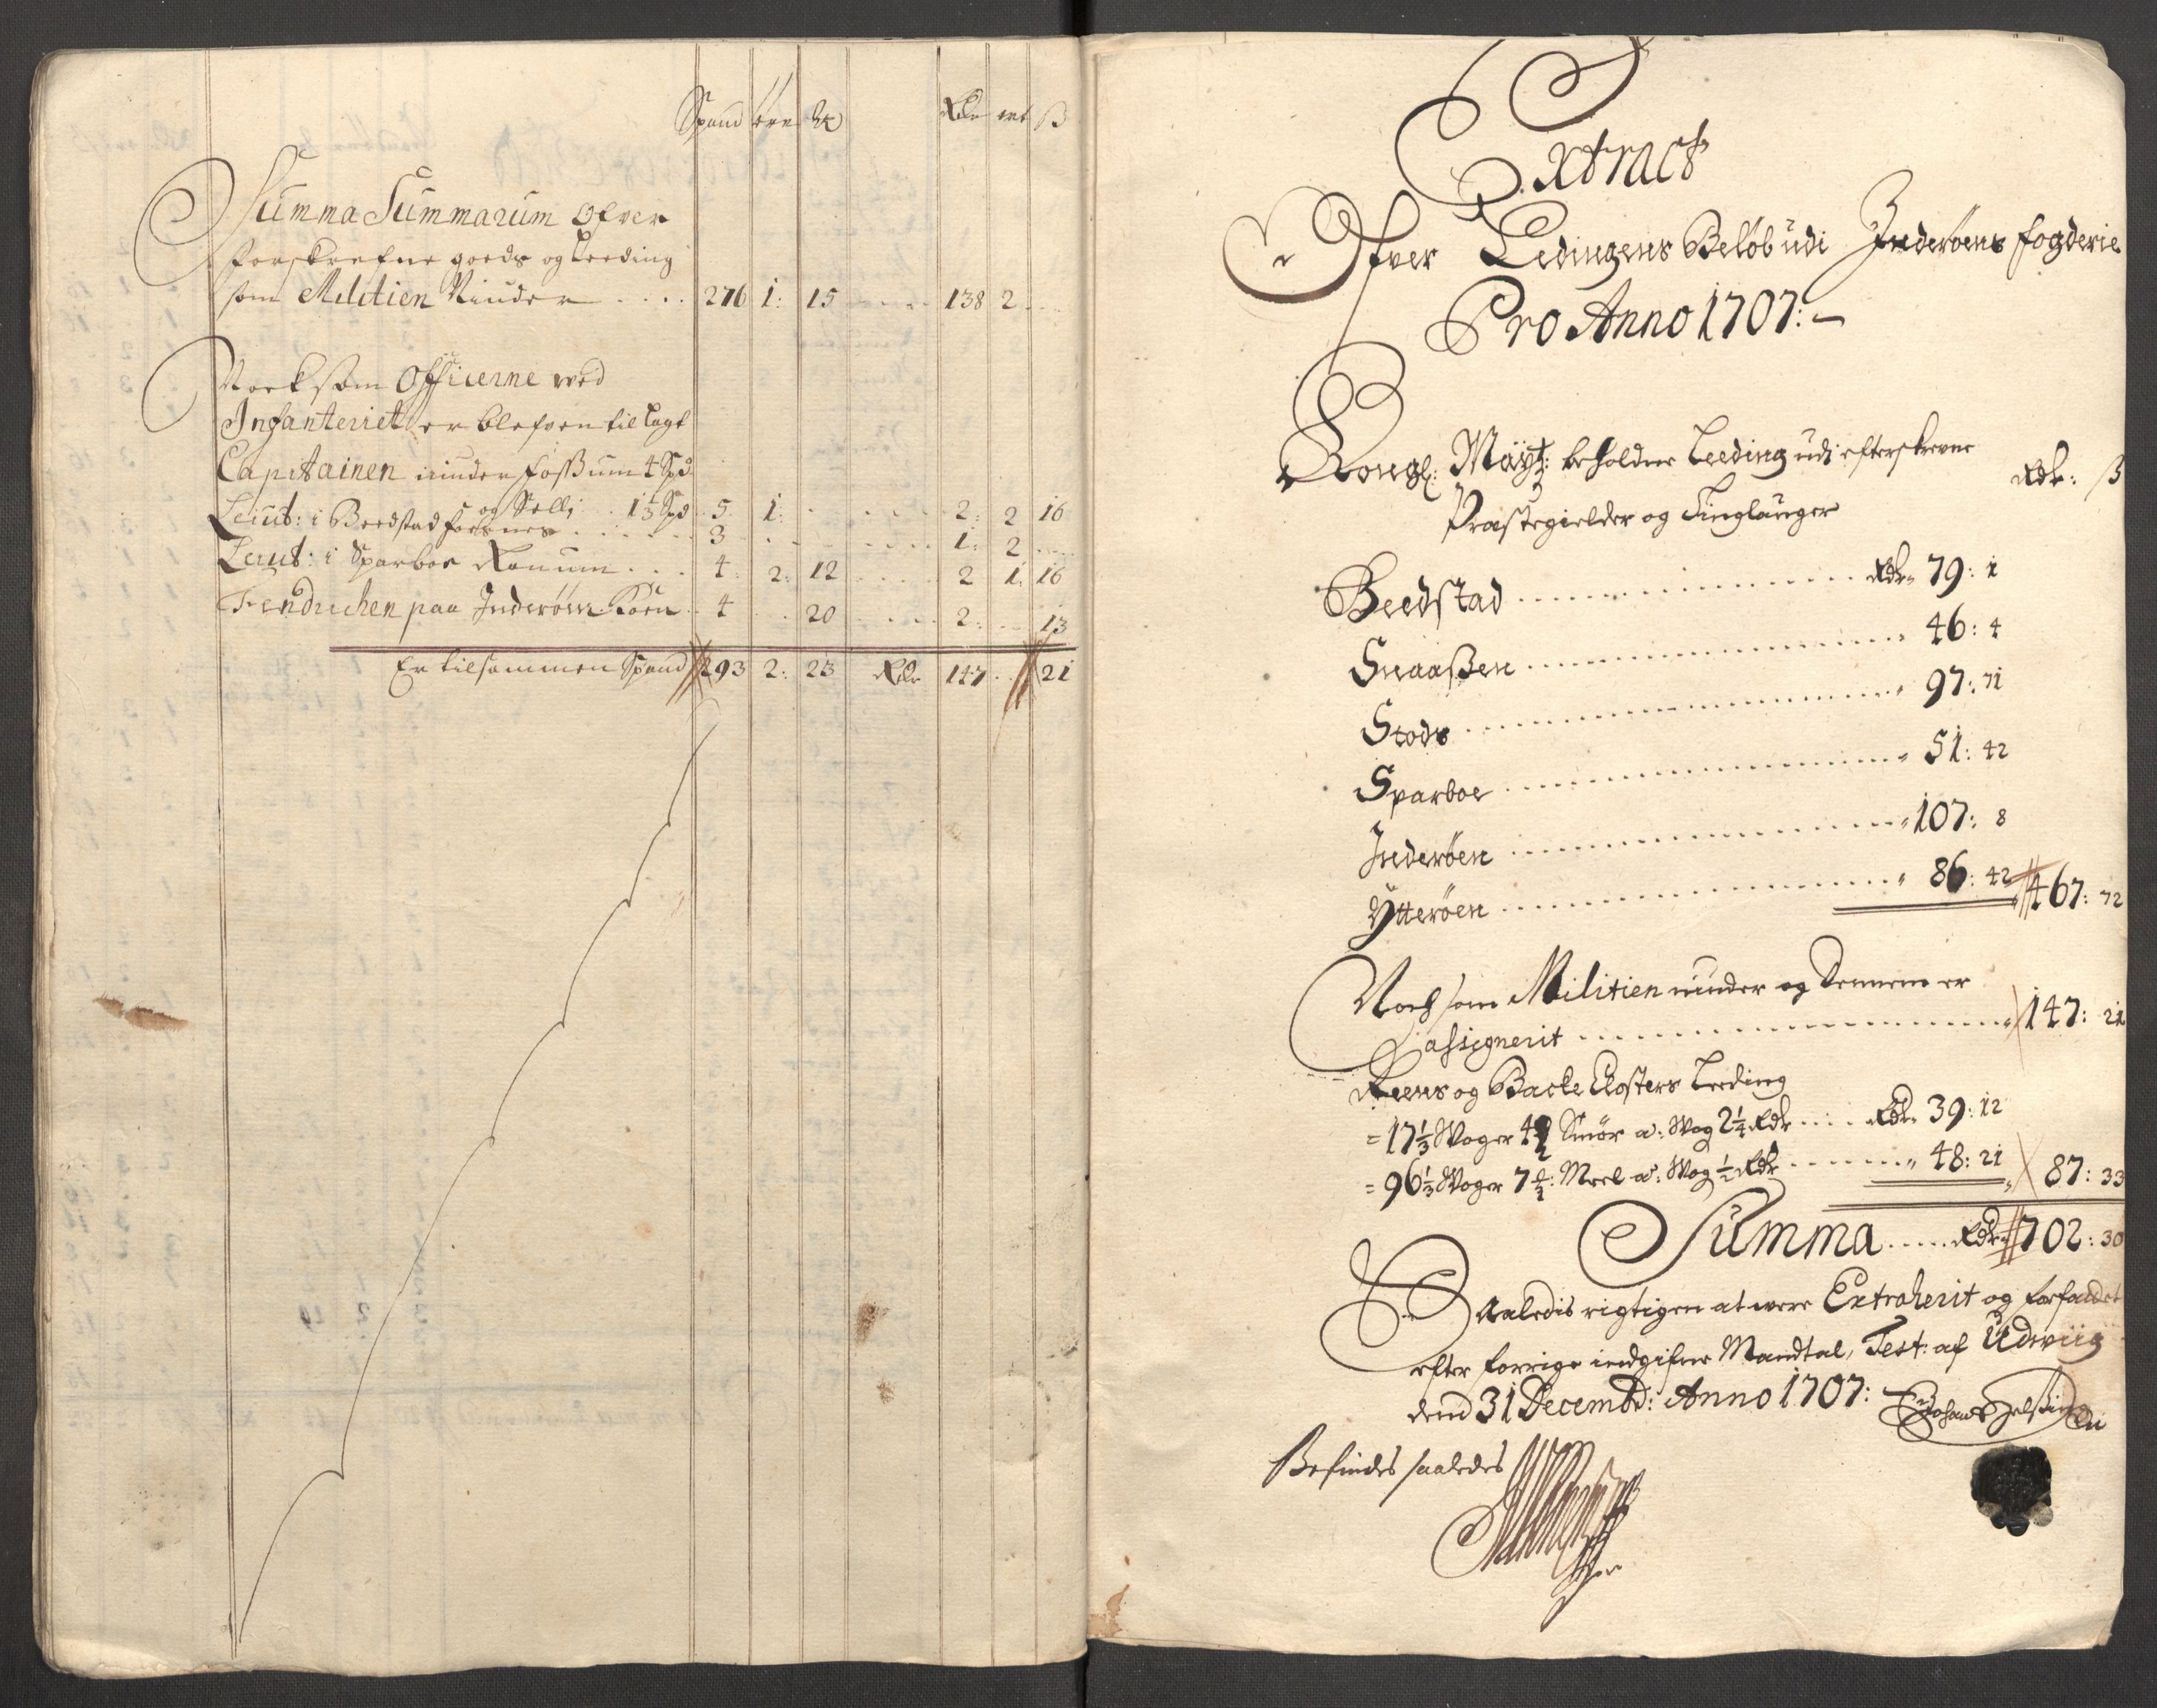 Spand øre Rdr ort ß
Summa Summarum Ofver
forskrefne goeds og Leeding
som Militien Niuder .... 276 1: 15 .... 138 2 ...
Noch som Officerne wed
Infanteriet er blefven tillagt
Capitainen niuder Fossum 4 Spd
og Selli .. 1⅓ Spd .. 5 1: ... 2: 2 16
Leiut: i Beedstad Forsnes ...... 3 ... 1: 2 ...
Leiut: i Sparboe Ranum ... 4. 2: 12 .... 2 1. 16
Fendrichen paa Inderøen Koen .. 4 .. 20 .... 2: .. 13
Er tilsammen Spand 293 2: 23 Rdr 147 .. 21
Extract
Ofver Ledingens Beløb udi Inderøens fogderie
Pro Anno 1707:
Kongl: Mayt: beholdne Leeding udi efterskrevne
Præstegielder og Tinglauger
Rdr: ß
Beedstad .......... Rdr 79: 1
Snaaßen .......... 46: 4
Stods .......... 97: 71
Sparboe .......... 51: 42
Inderøen .......... 107: 8
Ytterøen .......... 86: 42 467: 72
Noch som Militien niuder og dennem er
assignerit .......... 147: 21
Reens og Backe Closters Leeding
= 17⅓ Woger Smør a: Wog 2¼ Rdr .... Rdr 39: 12
= 96⅓ Woger Meel a: Wog ½ Rdr ...... 48: 21 87: 33
Summa ..... Rdr 702: 30
Saaledis rigtigen at were Extraherit og forfattet
efter forrige indgifne Mandtal, Test: af Udwiig
dend 31 Decembr: Anno 1707:
Befindes saaledes